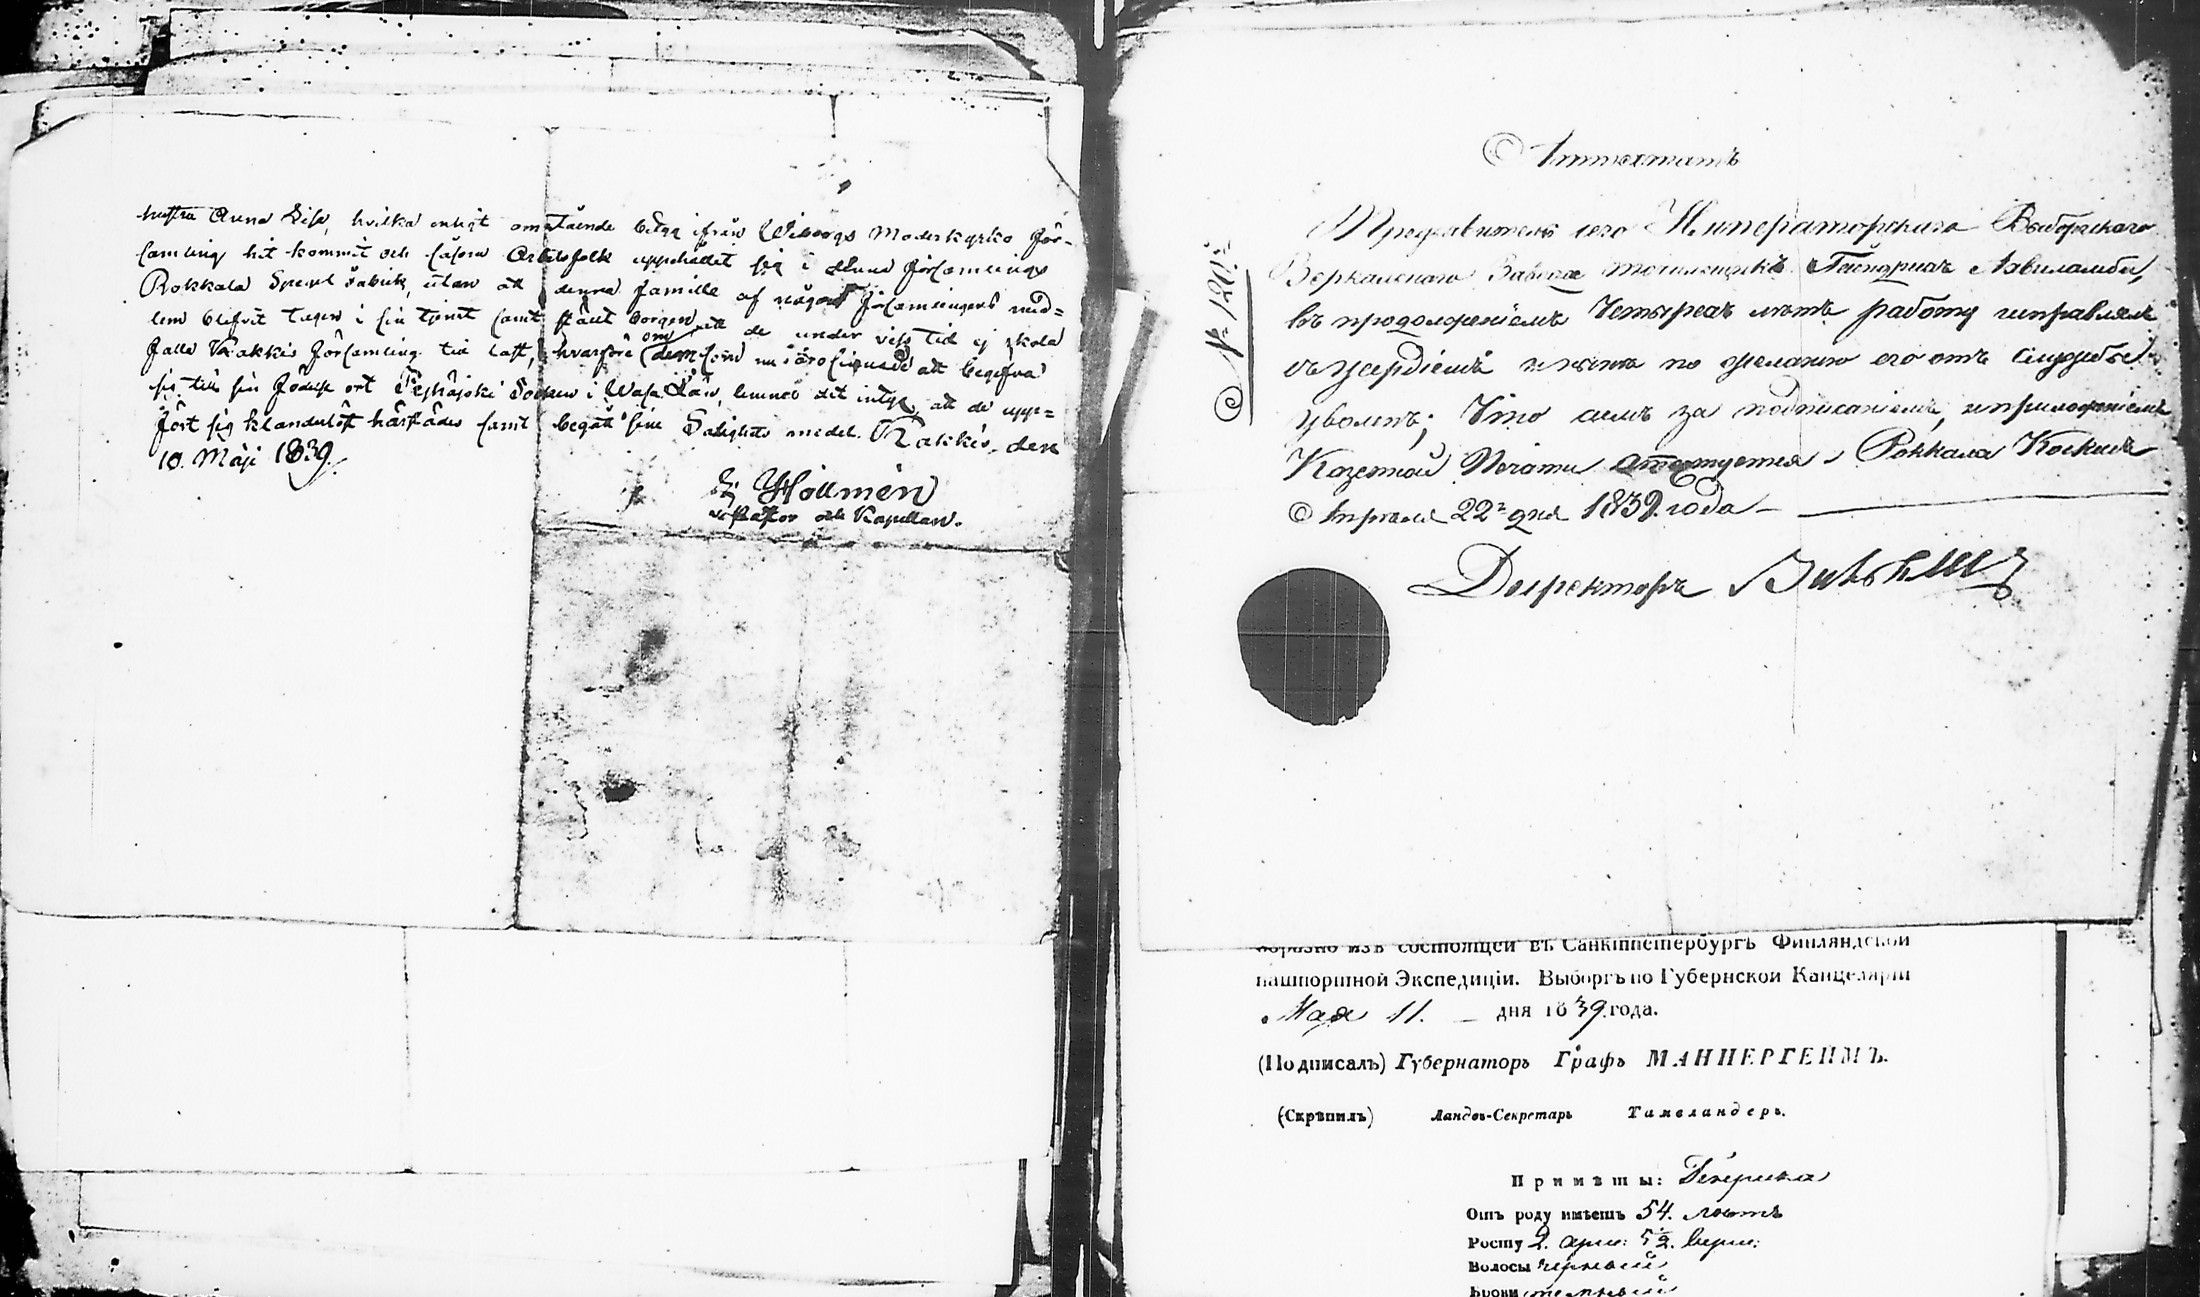 hustru Anna Lisa, hvilka enligt omstående betyg ifrån Wiborgs Moderkyrko För-
samling hit kommit och såsom Arbetsfolk uppehållit sig i denna Församlings
Rokkala Spegel Fabrik, utan att denna famille af någon Församlingens med-
lem blefvit tagen i sin tjenst samt stält borgen om att de under viss tid ej skola
falla Kakkis Församling till last, hvarföre dem som nu äro sinnade att begifva
sig till sin födelse ort Socken i Wasa Län, lemnas det intyg, att de upp-
fört sig klanderlöst härstädes samt begått sine Salighets medel. Kakkis, den
10. Maji 1839.
Hollmén
v: Pastor och Kapellan.
№ 120.
Аттестатъ
Предъявитель сего Императорскаго Выборгскаго
Зеркальнаго Завода
въ продолженіемъ Четырехъ лѣтъ работу исправлялъ
съ усердіемъ и нынѣ по желанію его отъ Службы
уволенъ; Что симъ за подписаніемъ, и приложеніемъ
Казенной Печати аттестуется. Роккала Коскисъ
Апреля 22го дня 1839. года —
Директоръ
образно изъ состоящей въ Санктпетербургѣ Финляндской
пашпортной Экспедиціи. Выборгъ по Губернской Канцеляріи
Мая 11. — дня 1839. года.
(Подписалъ) Губернаторъ Графъ МАННЕРГЕЙМЪ.
(Скрѣпилъ) Ландъ-Секретарь Тамеландеръ.
Примѣты:
Отъ роду имѣетъ 54. лѣтъ
Росту 2. арш: 5½. верш:
Волосы черныя
Брови темныя